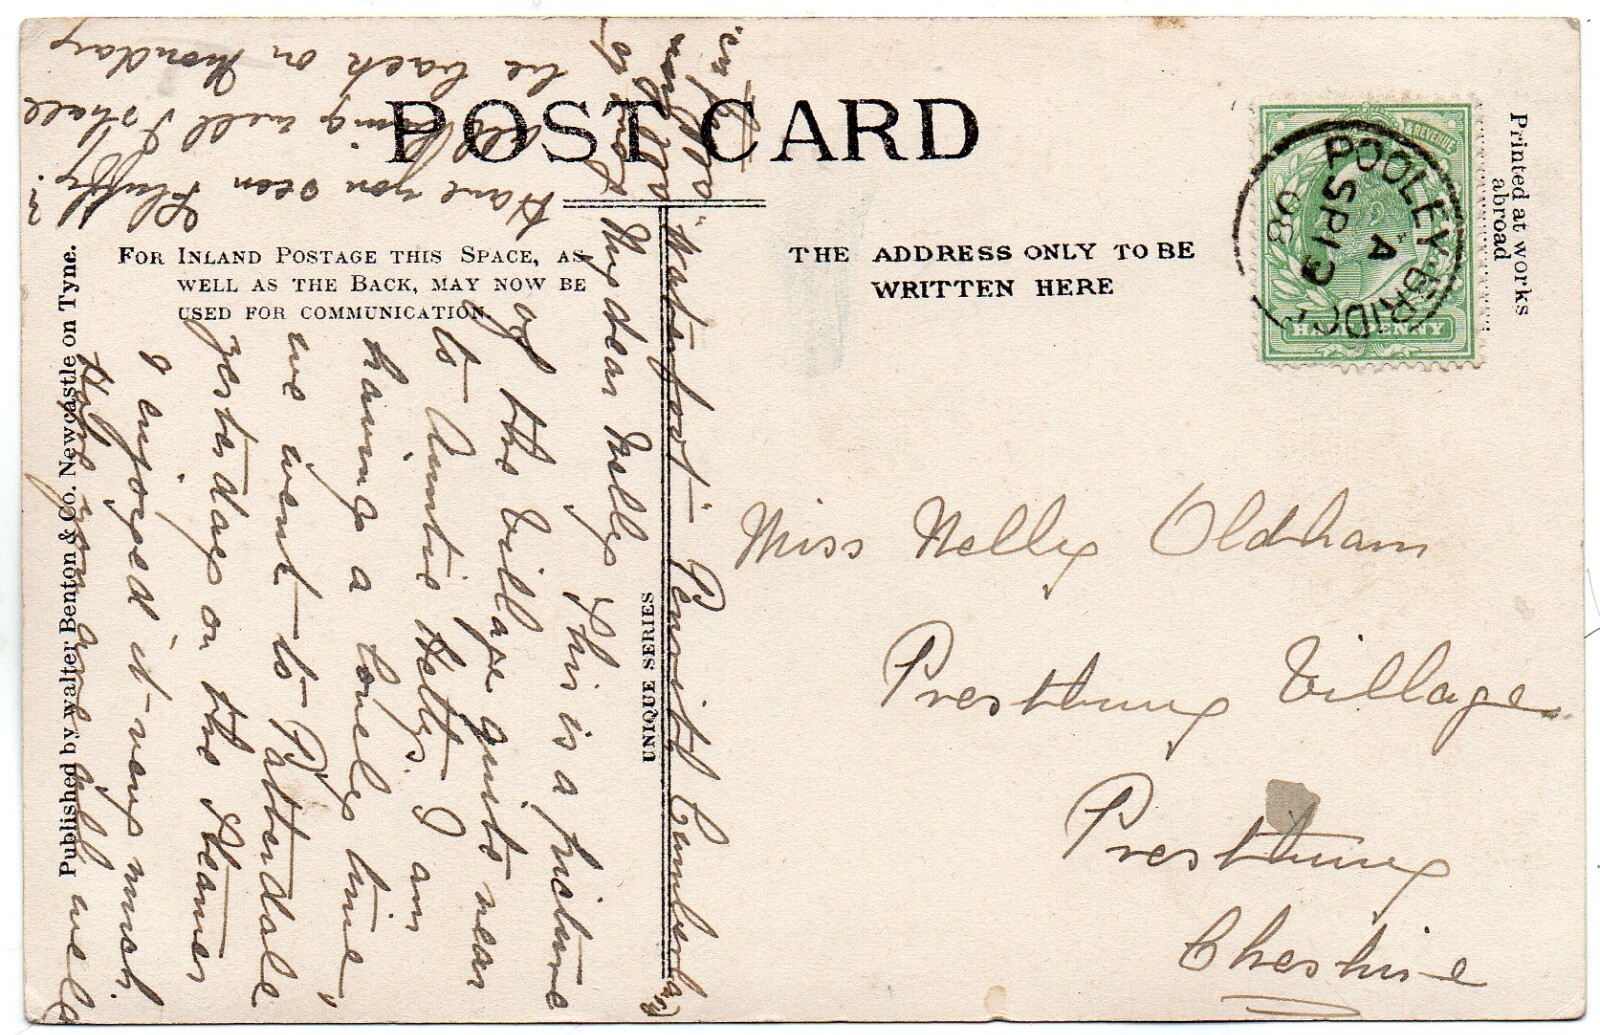 POST CARD
FOR INLAND POSTAGE THIS SPACE, AS
WELL AS THE BACK, MAY NOW BE
USED FOR COMMUNICATION.
THE ADDRESS ONLY TO BE
WRITTEN HERE
Printed at works
abroad
& REVENUE
HALFPENNY
POOLEY-BRIDGE
A
SP 13
08
Published by Walter Benton & Co. Newcastle on Tyne.
UNIQUE SERIES
Miss Nelly Oldham
Prestbury Village
Prestbury
Cheshire
Waterfoot Penrith Cumberland
My dear Nelly
This is a picture
of the village quite near
to Auntie Hettys. I am
having a lovely time,
we went to Patterdale
yesterday on the Steamer
I enjoyed it very much.
Hope you are all well
Have you seen Fluffy?
is all going well I shall
be back on Monday